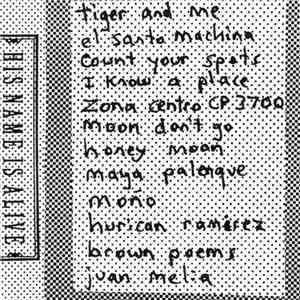 HIS NAME IS ALIVE
tiger and me
el santo machina
count your spots
I know a place
Zona centro CP 3700
moon don't go
honey moon
maya palenque
moño
hurican ramirez
brown poems
juan melia